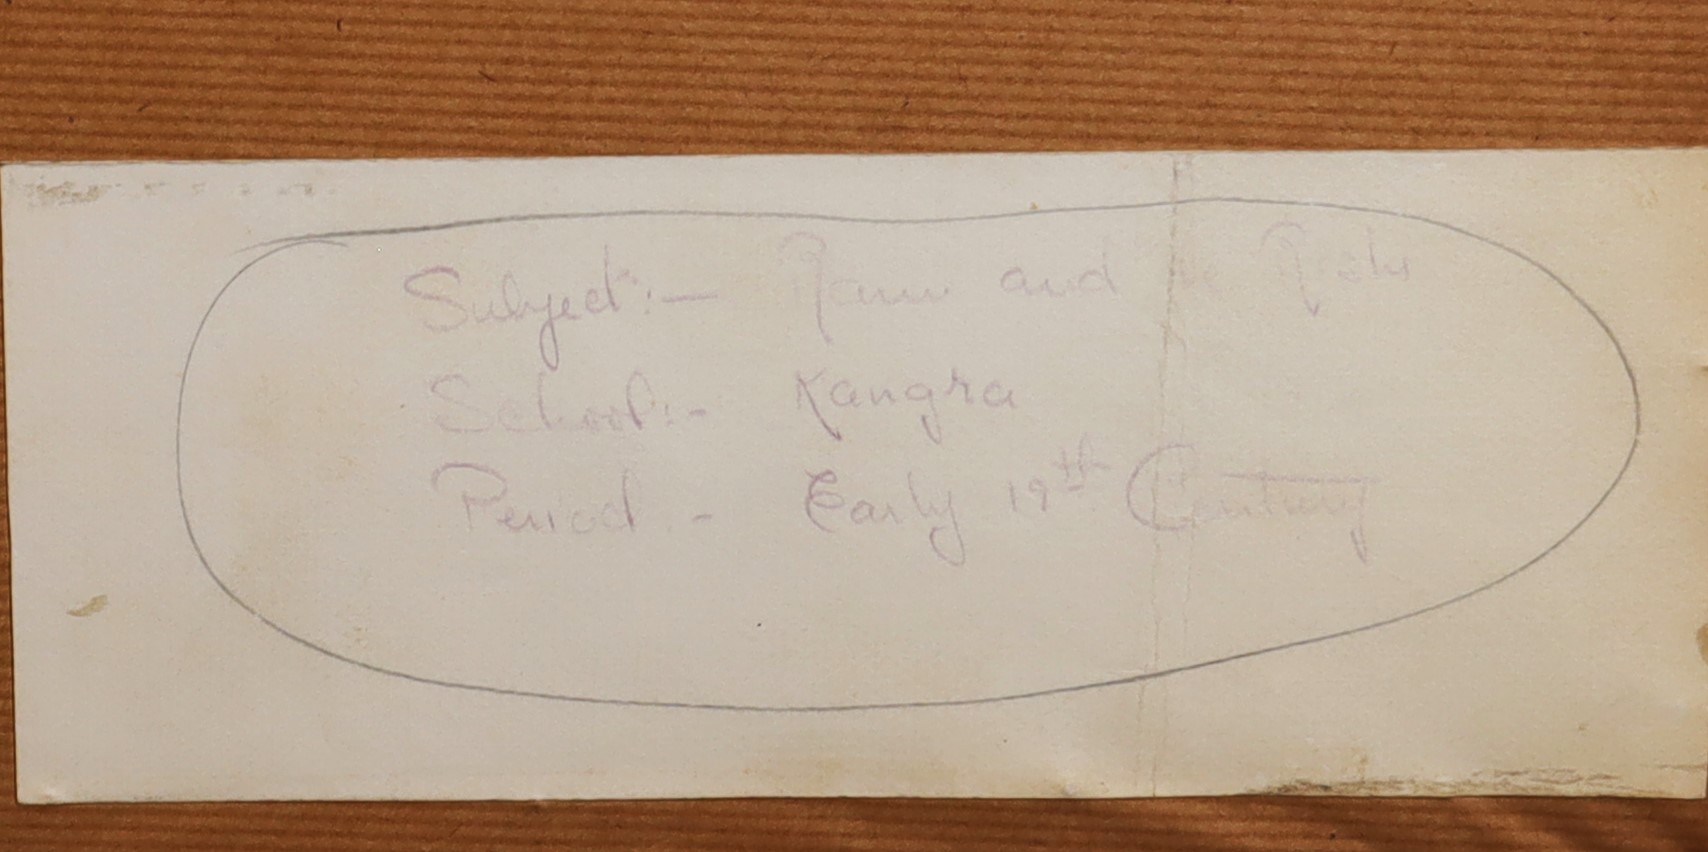 Subject:- Ram and
School:- Kangra
Period - Early 19th Century